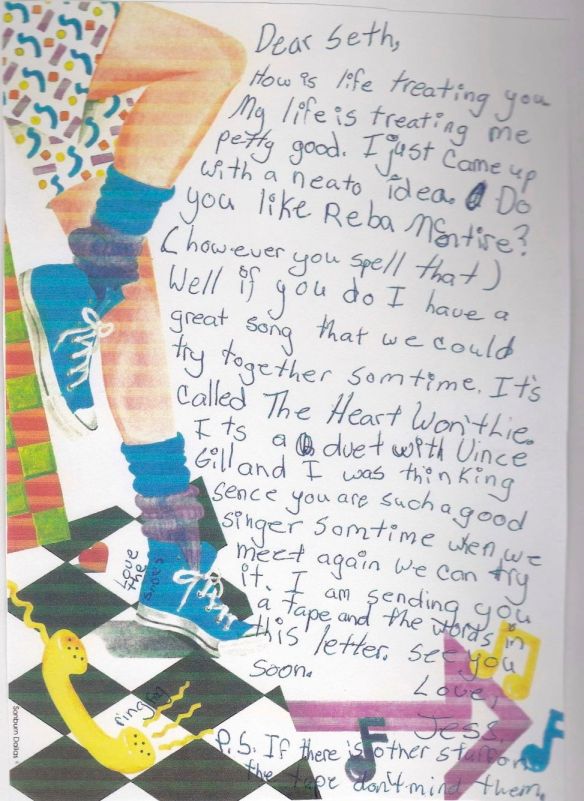 Dear Seth,
How is life treating you
My life is treating me
petty good. I just came up
with a neato idea. Do
you like Reba McEntire?
(however you spell that)
Well if you do I have a
great song that we could
try together somtime. It's
called The Heart Won't lie.
Its a duet with Vince
Gill and I was thinking
sence you are such a good
singer somtime when we
meet again we can try
it. I am sending you
a tape and the words in
this letter. See you
soon.
Love,
Jess.
P.S. If there is other stuff on
the tape don't mind them.
Love
the
shoes
ring